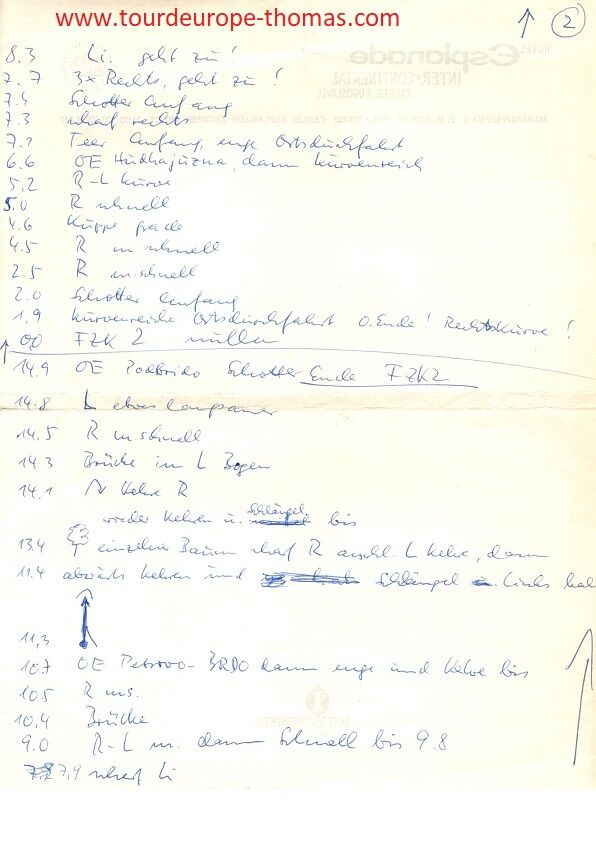 www.tourdeurope-thomas.com
2
HOTEL
Esplanade
INTER·CONTINENTAL
ZAGREB YUGOSLAVIA
8.3 Li. geht zu!
7.7 3x Rechts, geht zu!
7.4 Schotter Anfang
7.3 scharf rechts
7.2 Teer Anfang, enge Ortsdurchfahrt
6.6 OE Hudhajuzna, dann kurvenreich
5.2 R-L kurve
5.0 R schnell
4.6 Kuppe grade
4.5 R m schnell
2.5 R m. schnell
2.0 Schotter Anfang
1,9 kurvenreiche Ortsdurchfahrt O. Ende! Rechtskurve!
00 FZK 2 nullen
14.9 OE Podbrdo Schotter Ende FZK2
14.8 L etwas langsamer
14.5 R m. schnell
14.3 Brücke in L Bogen
14.1 Kehre R
wieder Kehren u. Schlängel bis
13.4 einzelner Baum scharf R anschl. L Kehre, dann
11.4 abwärts Kehren und Schlängel Links hal
11,3
10.7 OE Petrovo-BRDO dann enge und Kehre bis
10.5 R ms.
10.4 Brücke
9.0 R-L m. dann Schnell bis 9.8
7,9 scharf Li
INTER·CONTINENTAL